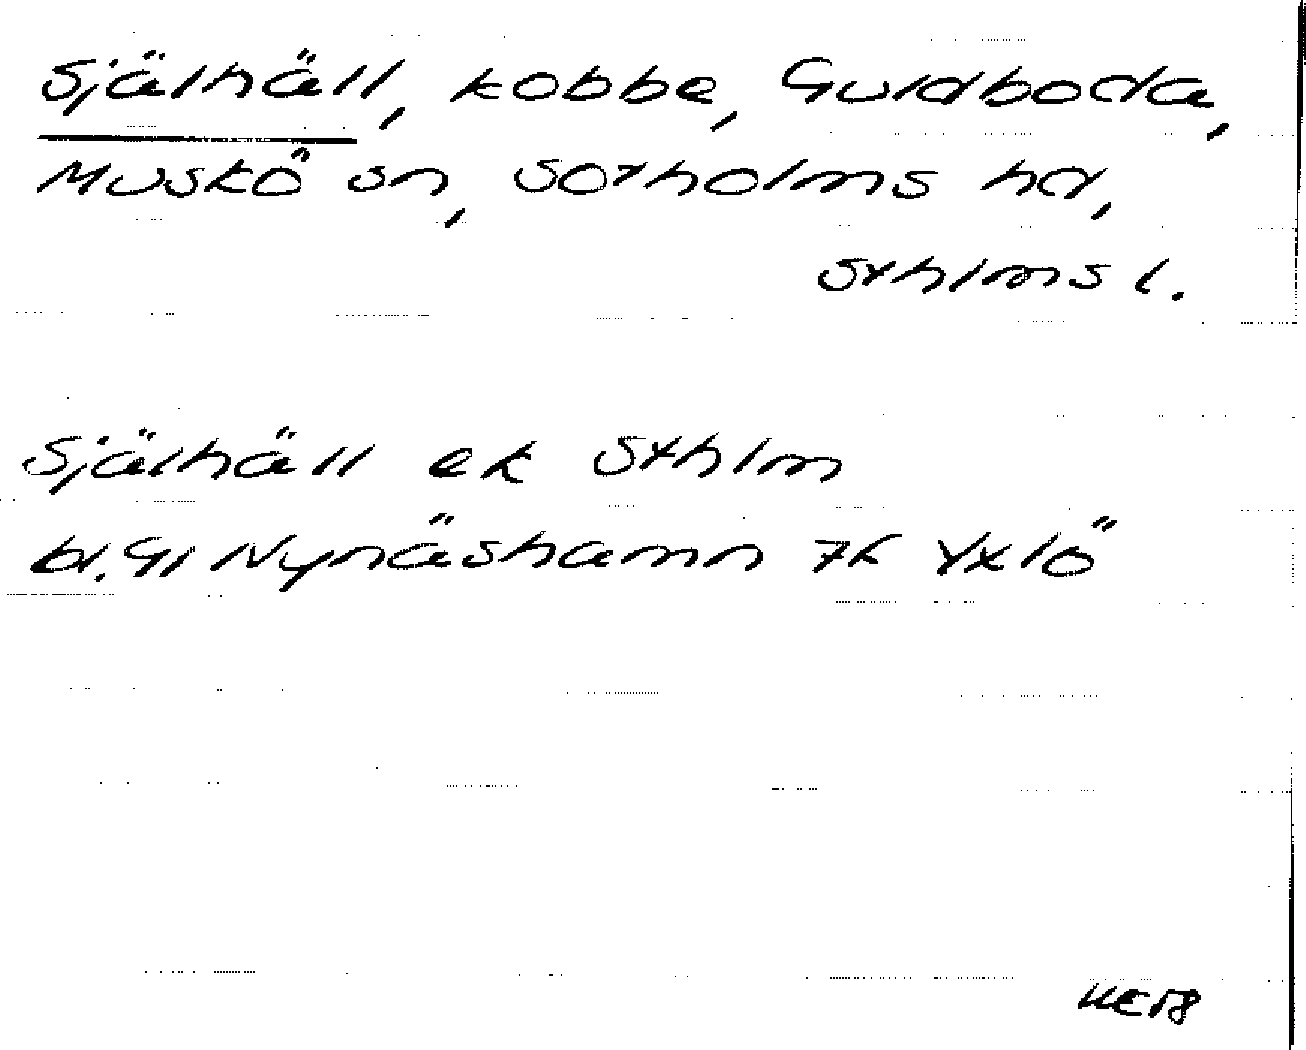 Själhäll, kobbe, Guldboda,
Muskö sn, Sotholms hd,
Sthlms l.
Själhäll ek Sthlm
bl. 91 Nynäshamn 7k Yxlö